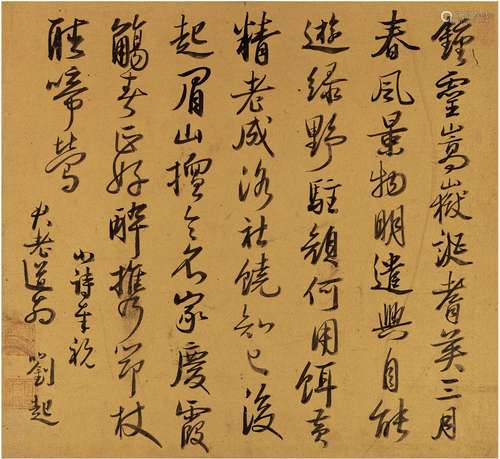 鐘靈嵩嶽誕耆英三月
春風景物明遣興自能
遊綠野駐顏何用餌黃
精老成洛社饒知己後
起眉山擅令名家慶霞
觴春正好醉攜筇杖
聽啼鶯
小詩奉祝
大老道翁 劉起